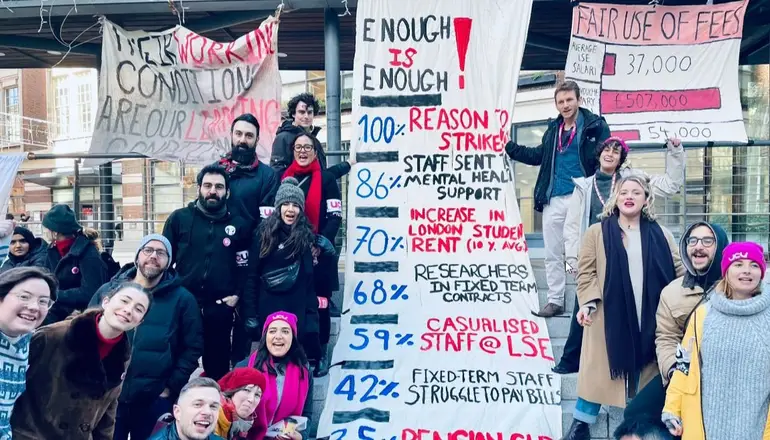 THEIR WORKING
CONDITIONS
ARE OUR LEARNING
ENOUGH
IS
ENOUGH!
100% REASON TO
STRIKE
86% STAFF SENT TO
MENTAL HEALTH
SUPPORT
70% INCREASE IN
LONDON STUDENT
RENT (10% AVG)
68% RESEARCHERS
IN FIXED TERM
CONTRACTS
59% CASUALISED
STAFF@LSE
42% FIXED-TERM STAFF
STRUGGLE TO PAY BILLS
35% PENSION
FAIR USE OF FEES
AVERAGE
LSE
SALARY
37,000
£507,000
54,000
UCU
UCU
UCU